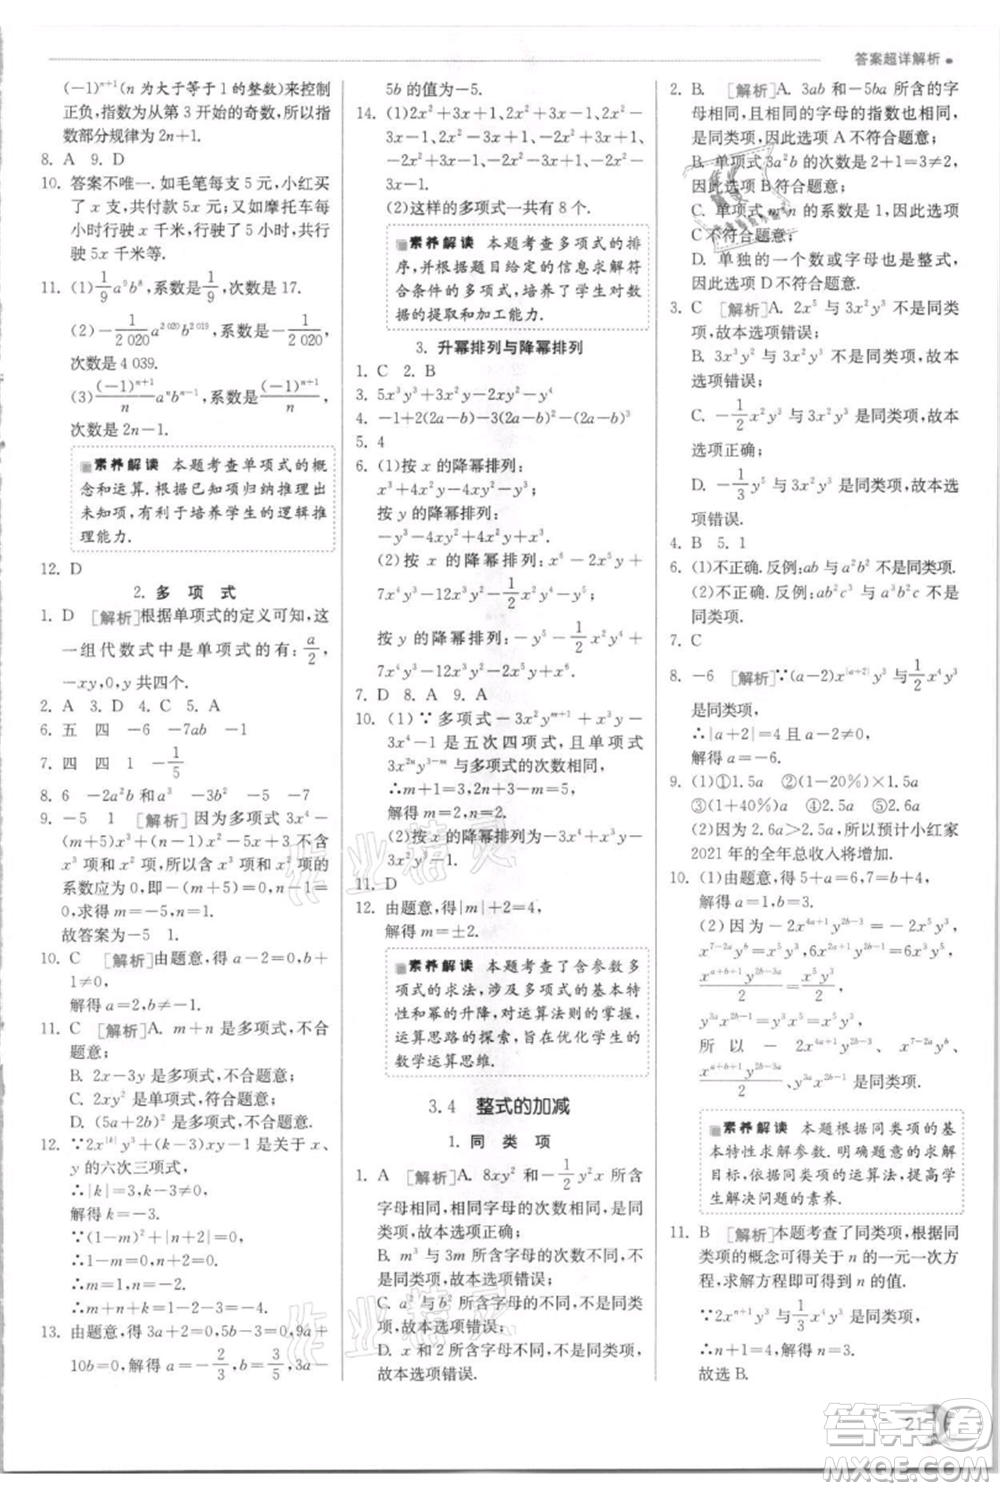 答案超详解析
(-1)ⁿ⁺¹(n 为大于等于 1 的整数)来控制
正负,指数为从第 3 开始的奇数,所以指
数部分规律为 2n+1.
8. A 9. D
10. 答案不唯一. 如毛笔每支 5 元,小红买
了 x 支,共付款 5x 元;又如摩托车每
小时行驶 x 千米,行驶了 5 小时,共行
驶 5x 千米等.
11. (1) 1/9 a⁹b⁸,系数是 1/9,次数是 17.
(2) -1/2 020 a²⁰²⁰b²⁰¹⁹,系数是 -1/2 020,
次数是 4 039.
(3) (-1)ⁿ⁺¹/n aⁿbⁿ⁻¹,系数是 (-1)ⁿ⁺¹/n,
次数是 2n-1.
素养解读 本题考查单项式的概
念和运算. 根据已知项归纳推理出
未知项,有利于培养学生的逻辑推
理能力.
12. D
2. 多 项 式
1. D [解析]根据单项式的定义可知,这
一组代数式中是单项式的有:a/2,
-xy,0,共四个.
2. A 3. D 4. C 5. A
6. 五 四 -6 -7ab -1
7. 四 四 1 -1/5
8. 6 -2a²b 和 a³ -3b -5 -7
9. -5 1 [解析]因为多项式 3x⁴-
(m+5)x³+(n-1)x²-5x+3 不含
x³ 项和 x² 项,所以 x³ 项和 x² 项的
系数应为 0,即 -(m+5)=0,n-1=
0,求得 m=-5,n=1.
故答案为-5 1.
10. C [解析]由题意,得 a-2=0,b+
1≠0,
解得 a=2,b≠-1.
11. C [解析]A. m+n 是多项式,不合
题意;
B. 2x-3y 是多项式,不合题意;
C. 2xy² 是单项式,符合题意;
D. (5a+2b)² 是多项式,不合题意.
12. ∵2x|k|y³+(k-3)x²y+y 是关于 x、
y 的六次三项式,
∴|k|=3,且 k-3≠0,
解得 k=-3.
∵(1-m)²+|n+2|=0,
∴1-m=0,n+2=0,
∴m=1,n=-2,
∴m-n+k=1+2-3=0.
13. 由题意,得 3a+2=0,9a+
10b=0,解得 a=-2/3,b=3/5,3a-
5b 的值为-5.
14. (1)2x²+3x+1、2x²+3x-1、2x²-
3x+1、2x²-3x-1、-2x²+3x+1、
-2x²+3x-1、-2x²-3x+1、-2x²-
3x-1.
(2)这样的多项式一共有 8 个.
素养解读 本题考查多项式的排
序,并根据题目给定的信息求解符
合条件的多项式,培养了学生对数
据的提取和加工能力.
3. 升幂排列与降幂排列
1. C 2. B
3. 5x³y³+3x²y-2xy²-y⁴
4. -1+2(2a-b)-3(2a-b)²+(2a-b)³
5. 4
6. (1)按 x 的降幂排列:
x³+4x²-6xy-y³.
按 y 的降幂排列:
-y³-6xy+4x²+x³.
(2)按 x 的降幂排列:x⁶-2x⁵y+
7x⁴y²-6x³y³-xy⁴-y⁵.
按 y 的降幂排列:-y⁵-xy⁴-6x³y³+
7x⁴y²-2x⁵y+x⁶.
7. D 8. A 9. A
10. (1)∵多项式-3x²yᵐ⁺¹+x³y-
3x⁴-1 是五次四项式,且单项式
3x²ⁿy³⁻ᵐ 与多项式的次数相同,
∴m+1=3,2n+3-m=5,
解得 m=2,n=2.
(2)按 x 的降幂排列为-3x⁴+x³y-
3x²y³-1.
11. D
12. 由题意,得|m|+2=4,
解得 m=±2.
素养解读 本题考查了含参数多
项式的求法,涉及多项式的基本特
性和幂的升降,对运算法则的掌握、
运算思路的探索,旨在优化学生的
数学运算思维.
3.4 整式的加减
1. 同 类 项
1. A [解析]A. 8xy² 和 -1/2 y²x 所含
字母相同,相同字母的指数相同,是同
类项,故本选项正确;
B. m³ 与 3m 所含字母的次数不同,
不是同类项,故本选项错误;
C. a² 与 b² 所含字母不同,不是同类
项,故本选项错误;
D. x 与 2 所含字母不同,不是同类
项,故本选项错误.
2. B [解析]A. 3ab 和 -5ba 所含的字
母相同,相同字母的指数也相同,是同
类项,因此选项 A 不符合题意;
B. 单项式 3a²b 的次数是 2+1=3≠2,
因此选项 B 符合题意;
C. 单项式 m²n 的系数是 1,因此选项
C 不符合题意;
D. 单独的一个数或字母也是整式,
因此选项 D 不符合题意.
3. C [解析]A. 2x⁵ 与 3x²y³ 不是同类
项,故本选项错误;
B. 3x³y² 与 3x²y³ 不是同类项,故本
选项错误;
C. -1/2 x²y³ 与 3x²y³ 是同类项,故本
选项正确;
D. -1/3 y⁵ 与 3x²y³ 不是同类项,故本
选项错误.
4. B 5. 1
6. (1)不正确. 反例:ab 与 a²b² 不是同类项.
(2)不正确. 反例:ab²c³ 与 a³b²c 不是
同类项.
7. C
8. -6 [解析]∵(a-2)x|a+2|y³ 与 1/2 x⁴y³
是同类项,
∴|a+2|=4 且 a-2≠0,
解得 a=-6.
9. (1)①1.5a ②(1-20%)×1.5a
③(1+40%)a
(2)2.6a>2.5a,所以预计小红家
2021 年的全年总收入将增加.
10. (1)由题意,得 5+a=6,7-2=2b-1,
解得 a=1,b=3.
(2)因为 -2x⁴ᵃ⁺¹y²ᵇ⁻³=-2x⁵y³,
x⁷⁻²ᵃy²ᵇ⁻³=x⁵y³,6x²y²ᵇ⁻¹=6x²y⁵,
所以 -2x⁴ᵃ⁺¹y²ᵇ⁻³、
素养解读 本题根据同类项的基
本特性求解参数. 明确题意,瞄准
目标,依据同类项的运算法,提高学
生解决问题的素养.
11. B [解析]本题考查了同类项,根据同
类项的概念可得关于 n 的一元一次方
程,求解方程即可得出 n 的值.
∵2xⁿ⁺¹y³ 与 1/3 x⁴y³ 是同类项,
∴n+1=4,解得 n=3.
故选 B.
21
作业精灵
作业精灵
答案圈
MXQE.COM